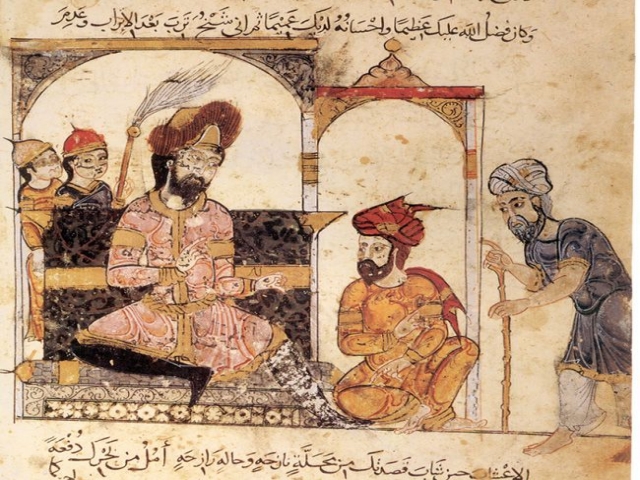 وكان فضل الله عليك عظيما واحسانه لديك عميما ثم اني شيخ ترب بعد الاتراب وعدم
الاعشاب حين شاب قصدتك من محلة نازحة وحالة رازحة آمل من بحرك دفعة